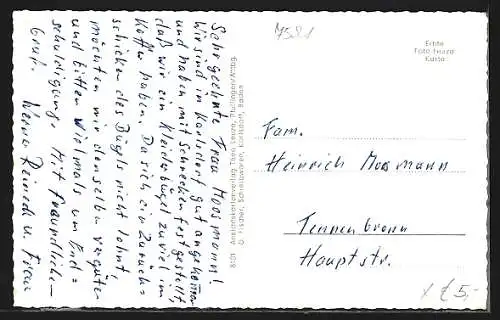 Sehr geehrte Frau Moosmann!
Wir sind in Karlsdorf gut angekommen
und haben mit Schrecken festgestellt
daß wir ein Kleiderbügel zuviel im
Koffer haben. Da sich ein Zurück-
schicken des Bügls nicht lohnt,
möchten wir denselben vergüten
und bitten Vielmals um Ent=
schuldigung. Mit Freundlichen
Gruß. Werner Reineck u. Frau
8101 Ansichtskartenverlag Theo Leuze, Pfullingen/Wttbg.
O. Fischer, Schreibwaren, Karlsdorf, Baden
7581
Echte
Foto-Leuze
Karte
Fam.
Heinrich Moosmann
Tennenbronn
Hauptstr.